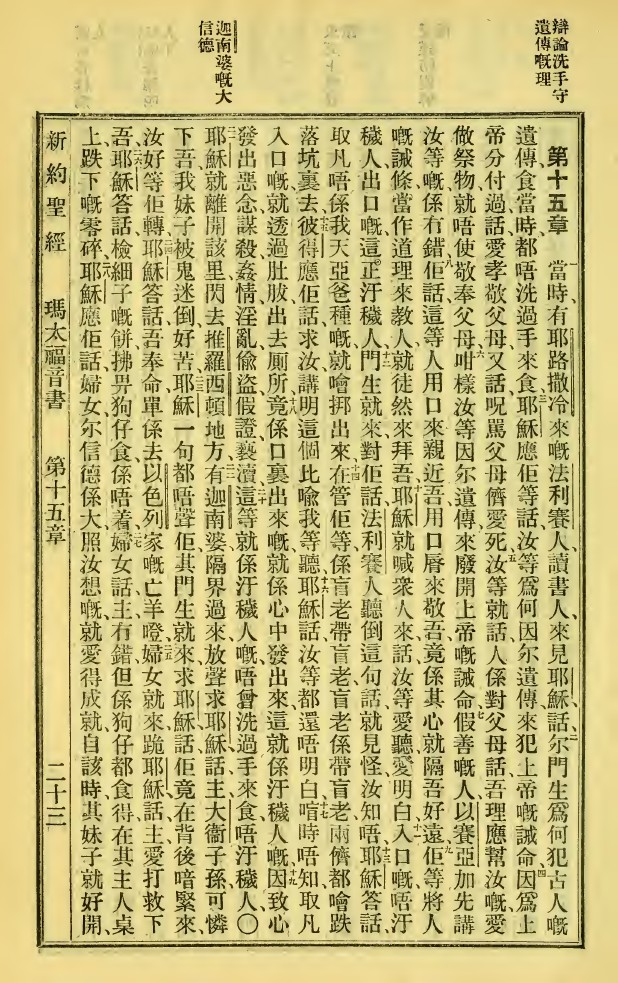 辯論洗手守
遺傳嘅理
迦南婆嘅大
信德
第十五章 當時有耶路撒冷來嘅法利賽人讀書人來見耶穌話尔門生爲何犯古人嘅
遺傳食當時都唔洗過手來食耶穌應佢等話汝等爲何因尔遺傳來犯上帝嘅誡命因爲上
帝分付過話愛孝敬父母又話呪罵父母儕愛死汝等就話人係對父母話吾理應幫汝嘅愛
做祭物就唔使敬奉父母咁樣汝等因尔遺傳來廢開上帝嘅誡命假善嘅人以賽亞加先講
汝等嘅係冇錯佢話這等人用口來親近吾用口唇來敬吾竟係其心就隔吾好遠佢等將人
嘅誡條當作道理來教人就徒然來拜吾耶穌就喊衆人來話汝等愛聽愛明白入口嘅唔汙
穢人出口嘅這正汙穢人門生就來對佢話法利賽人聽倒這句話就見怪汝知唔耶穌答話
取凡唔係我天亞爸種嘅就噲挷出來在管佢等係盲老帶盲老盲老係帶盲老兩儕都噲跌
落坑裏去彼得應佢話求汝講明這個比喻我等聽耶穌話汝等都還唔明白喧時唔知取凡
入口嘅就透過肚胈出去厠所竟係口裏出來嘅就係心中發出來這就係汙穢人嘅因致心
發出惡念謀殺姦情淫亂偷盜假證褻瀆這等就係汙穢人嘅唔曾洗過手來食唔汙穢人〇
耶穌就離開該里閃去推羅西頓地方有迦南婆隔界過來放聲求耶穌話主大衞子孫可憐
下吾我妹子被鬼迷倒好苦耶穌一句都唔聲佢其門生就來求耶穌話佢竟在背後喑緊來
汝好等佢轉耶穌答話吾奉命單係去以色列家嘅亡羊䠬婦女就來跪耶穌話主愛打救下
吾耶穌答話檢細子嘅餅拂畀狗仔食係唔着婦女話主冇錯但係狗仔都食得在其主人桌
上跌下嘅零碎耶穌應佢話婦女尔信德係大照汝想嘅就愛得成就自該時其妹子就好開
新約聖經 瑪太福音書 第十五章 二十三